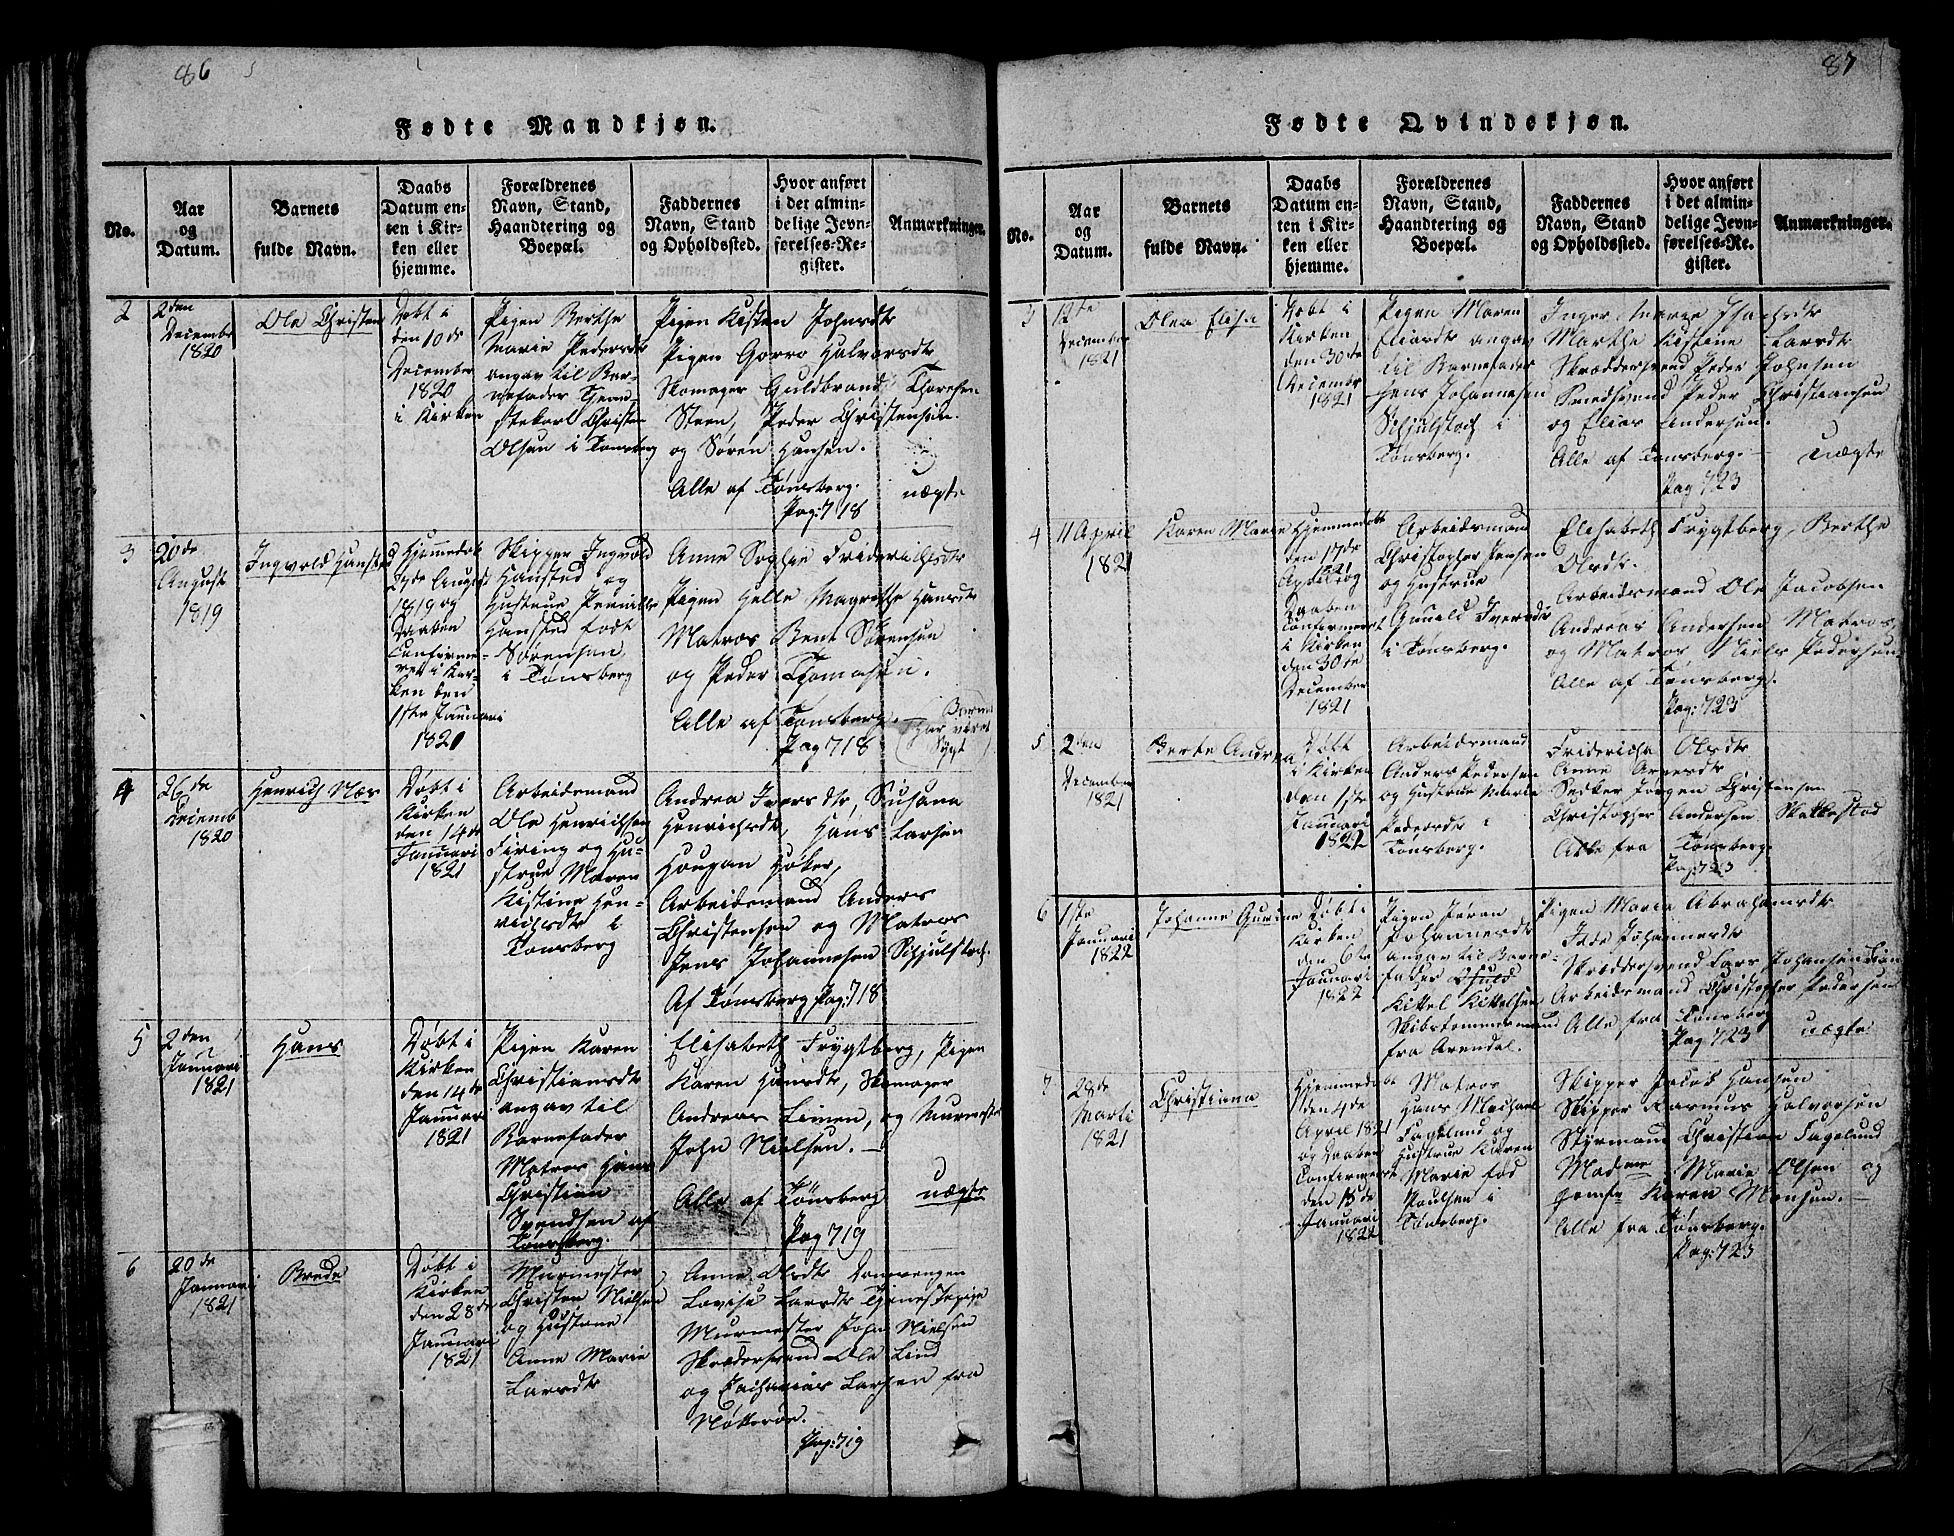 86
Fødte Mandkjøn.
No.
Aar
og
Datum.
Barnets
fulde Navn.
Daabs
Datum en-
ten i Kir-
ken eller
hjemme.
Forældrenes
Navn, Stand,
Haandtering og
Boepæl.
Faddernes
Navn, Stand
og Opholdssted.
Hvor anført
i det almin-
delige Jevn-
førelses-Re-
gister.
Anmærkninger.
2
2den
December
1820
Ole Christen
Døbt i
den 10de
December
1820
i Kirken
Pigen Berthe
Marie Pedersdtr
angav til Bar-
nefader
Christen
Olsen i Tønsberg
Pigen Kisten Johnsdtr
Pigen Gorro Halvorsdtr
Skomager Guldbrand Thoresen
Steen, Peder Christensen
og Søren Hansen.
Alle af Tønsberg.
Pag: 718
uægte
3
20de
August
1819
Ingvold Hansted
Hjemmedøbt
August
1819 og
Daaben
Confirme-
ret i Kir-
ken den
1ste Januari
1821
Skipper Ingvold
Hansted og
Hustrue Pernille
Hansted født
Sørensen
i Tønsberg
Anne Sophie Friderichsdtr
Pigen Helle Magrethe Hansdtr
Matros Bent Sørensen
og Peder Thomasen.
Alle af Tønsberg.
Pag 718
Barnet
har været
Sygt
4
26de
Decemb
1820
Henrich Næs
Døbt i
Kirken
den 14de
Januari
1821
Arbeidsmand
Ole Henrichsen
Firing og Hu-
strue Maren
Kistine Hen-
richsdtr i
Tønsberg
Andrea Iversdtr, Susana
Henrichsdtr, Hans Larsen
Hougan Høker,
Arbeidsmand Anders
Christensen og Matros
Jens Johannesen Schjulstoch.
Af Tønsberg Pag: 718
5
2den
Januari
1821
Hans
Døbt i
Kirken
den 14de
Januari
1821
Pigen Karen
Christiansdtr
angav til
Barnefader
Matros Hans
Christian
Svendsen af
Tønsberg.
Elisabeth Frygtberg, Pigen
Karen Hansdtr, Skomager
Andreas Linen, og Murmester
John Nielsen.
Alle af Tønsberg
uægte
Pag 719
6
20de
Januari
1821
Brede
Døbt i
Kirken
den 28de
Januari
1821
Murmester
Christen Nielsen
og Hustrue
Anne Marie
Larsdtr
Anne Olsdtr
Lovise Larsdtr Tjenestepige
Murmester John Nielsen
Skrædersvend Ole Lind
og Zacharias Larsen fra
Nøtterøe.
Pag: 719
87
Fødte Qvindekjøn.
No.
Aar
og
Datum.
Barnets
fulde Navn.
Daabs
Datum en-
ten i Kir-
ken eller
hjemme.
Forældrenes
Navn, Stand,
Haandtering og
Boepæl.
Faddernes
Navn, Stand
og Opholdssted.
Hvor anført
i det almin-
delige Jevn-
førelses-Re-
gister.
Anmærkninger.
3
12te
December
1821
Olea Elisa
Døbt i
Kirken
den 30de
Decembr
1821
Pigen Maren
Eliasdtr angav
til Barnefader
Hens Johannesen
Schjulstoch i
Tønsberg.
Inger Marie
Marthe Kistine Larsdtr
Skræddersvend Peder Johnsen
Smedsvend Peder Christiansen
og Elias Andersen.
Alle af Tønsberg.
uægte
Pag 723
4
11 April
1821
Karen Marie
Hjemmedøbt
den 17de
April 1821 og
Daaben
Confirmeret
i Kirken
den 30de
December
1821
Arbeidsmand
Christopher Jensen
og Hustrue
Gunild Iversdtr
i Tønsberg.
Elisabeth Frygtberg, Berthe
Olsdtr.
Arbeidsmand Ole Jacobsen
Andreas Andersen Matros
og Matros Niels Pedersen
Alle af Tønsberg.
Pag: 723
5
2den
December
1821
Berte Andrea
Døbt
i Kirken
den 1ste
Januari
1822
Arbeidsmand
Anders Pedersen
og Hustrue Marie
Pedersdtr i
Tønsberg.
Friderícha Olsdtr
Anne Arnesdtr
Jørgen Christensen
Christopher Andersen Slettestad
Alle fra Tønsberg.
Pag: 723
6
1ste
Januari
1822
Johanne Gurine
Døbt i
Kirken
den 6te
Januari
1822
Pigen Jøran
Johannesdtr
angav til Barne-
fader
Kittel Kittelsen
Skibstømmermand
fra Arendal.
Pigen Maria Abrahamsdtr
Johannesdtr
Skræddersvend Lars Johansen
Arbeidsmand Christopher Pedersen
Alle fra Tønsberg
Pag: 723
uægte
7
28de
Marti
1821
Christiana
Hjemmedøbt
den 4de
April 1821
og Daaben
Confirmeret
den 13de
Januari
1822
Matros
Hans Michael
Fagelund og
Hustrue Karen
Marie fød
Poulsen i
Tønsberg.
Skipper Jacob Hansen
Skipper Rasmus Halvorsen
Styrmand Christian Fagelund
Madme Marie Olsen og
Jomfr Karen Monsen.
Alle fra Tønsberg.
Pag: 723